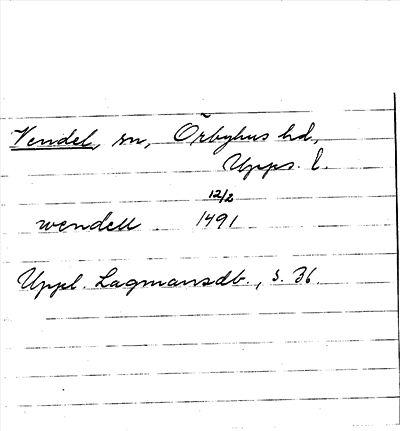 Vendel, sn, Örbyhus hd,
Upps. l.
12/2
wendell 1491
Uppl. Lagmansdb., s. 36.